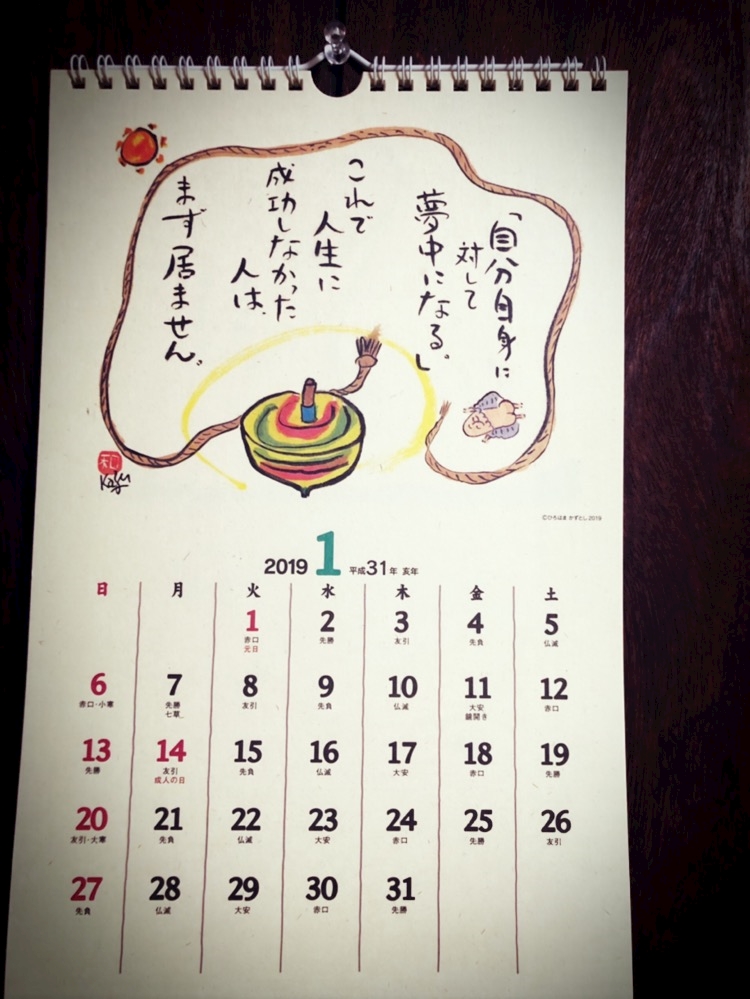 「自分自身に
対して
夢中になる。」
これで
人生に
成功しなかった
人は、
まず居ません。
Kazu
©ひろはまかずとし 2019
2019 1 平成31年 亥年
日 月 火 水 木 金 土
1 2 3 4 5
赤口 先勝 友引 先負 仏滅
元日
6 7 8 9 10 11 12
赤口・小寒 先勝 友引 先負 仏滅 大安 赤口
七草 鏡開き
13 14 15 16 17 18 19
先勝 友引 先負 仏滅 大安 赤口 先勝
成人の日
20 21 22 23 24 25 26
友引・大寒 先負 仏滅 大安 赤口 先勝 友引
27 28 29 30 31
先負 仏滅 大安 赤口 先勝